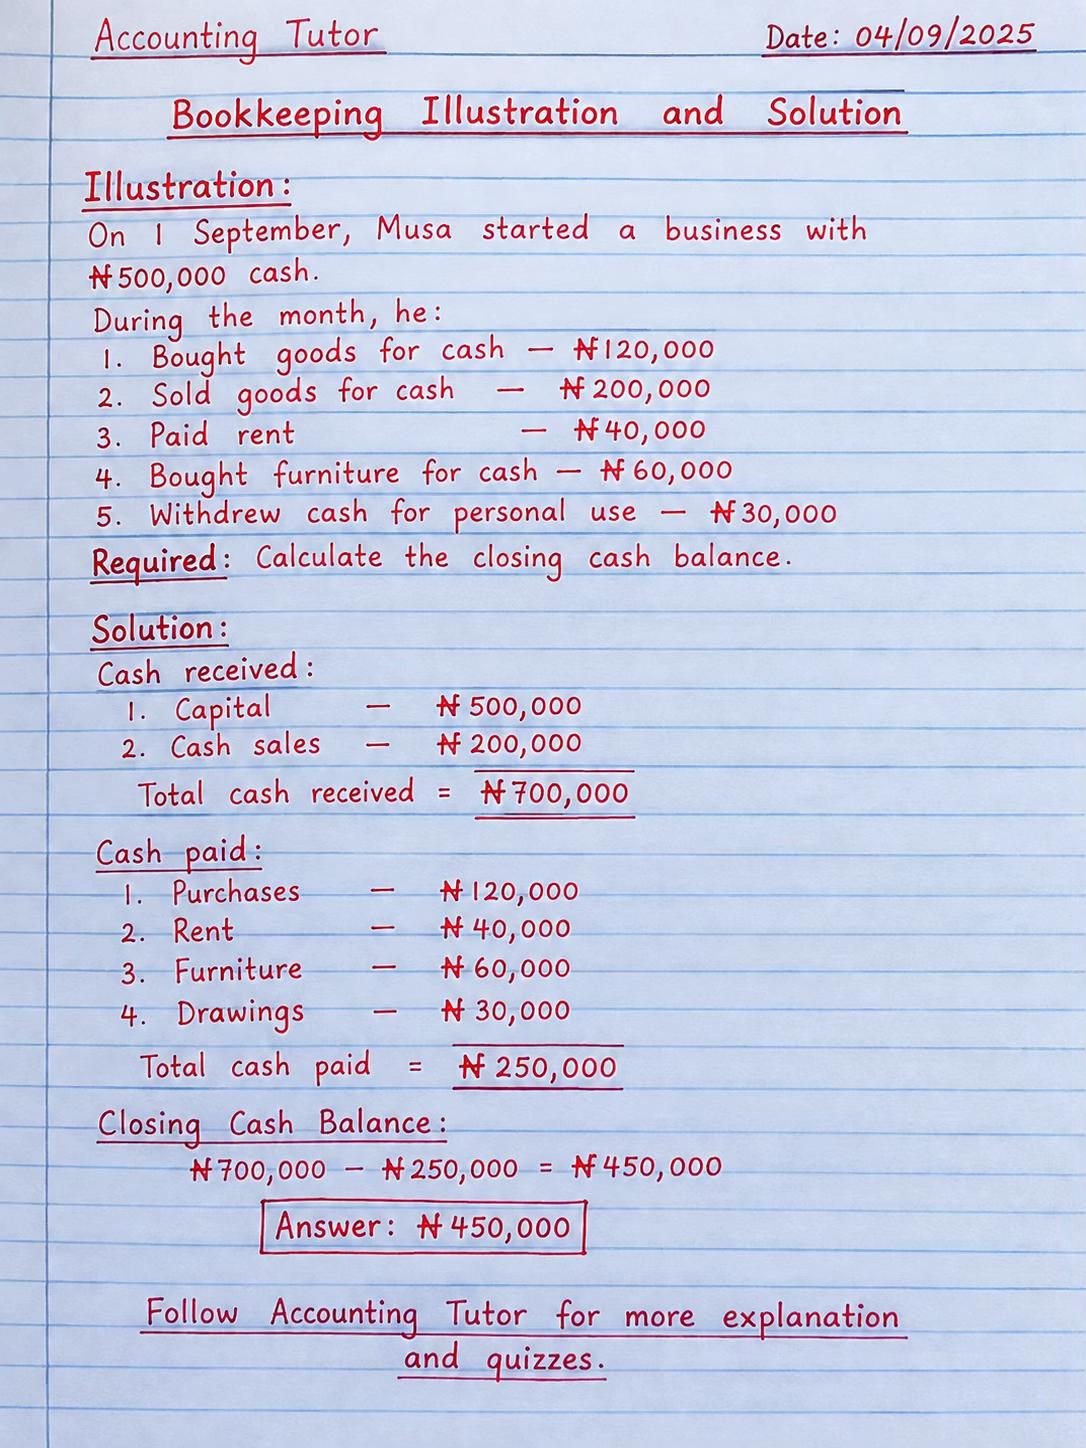 Accounting Tutor
Date: 04/09/2025
Bookkeeping Illustration and Solution
Illustration:
On 1 September, Musa started a business with
₦500,000 cash.
During the month, he:
1. Bought goods for cash — ₦120,000
2. Sold goods for cash — ₦200,000
3. Paid rent — ₦40,000
4. Bought furniture for cash — ₦60,000
5. Withdrew cash for personal use — ₦30,000
Required: Calculate the closing cash balance.
Solution:
Cash received:
1. Capital — ₦500,000
2. Cash sales — ₦200,000
Total cash received = ₦700,000
Cash paid:
1. Purchases — ₦120,000
2. Rent — ₦40,000
3. Furniture — ₦60,000
4. Drawings — ₦30,000
Total cash paid = ₦250,000
Closing Cash Balance:
₦700,000 — ₦250,000 = ₦450,000
Answer: ₦450,000
Follow Accounting Tutor for more explanation
and quizzes.